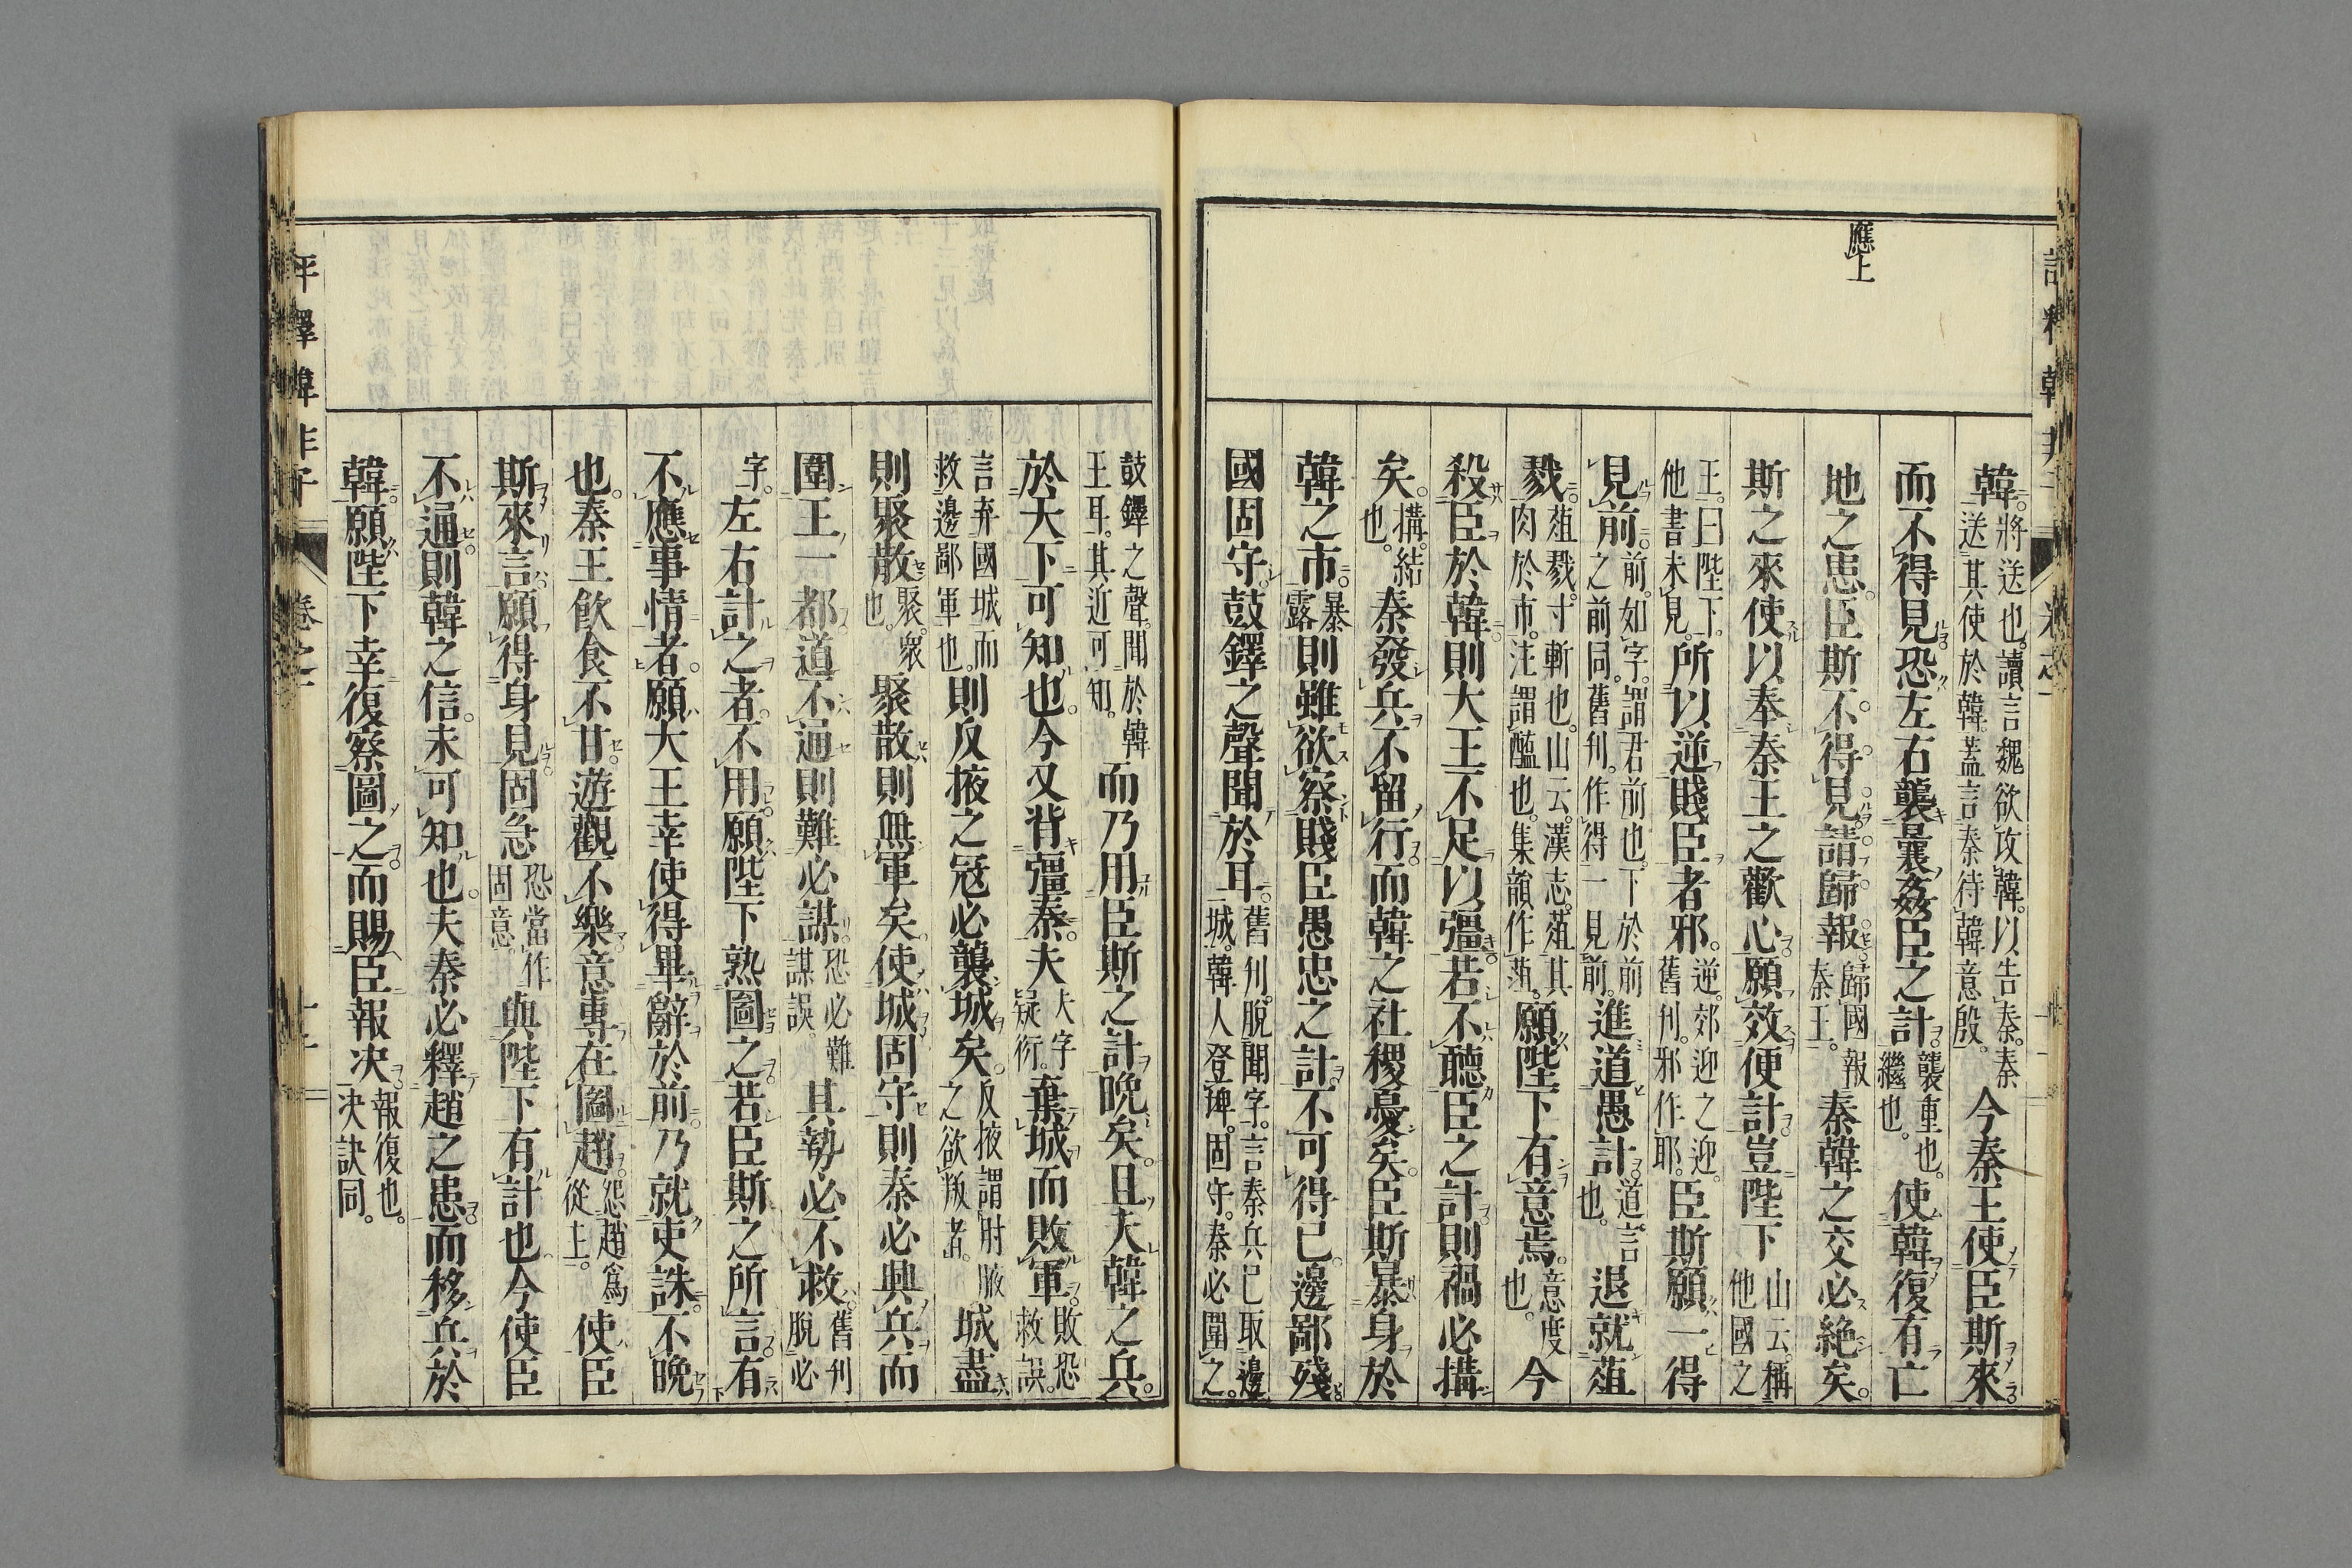 應上
韓。將送也。讀言魏欲攻韓。以告秦。秦送其使於韓。蓋言秦待韓意殷。今秦王使臣斯來
而不得見恐左右襲曩姦臣之計。襲重也。繼也。使韓復有亡
地之患。臣斯不得見請歸報。歸國報秦王。秦韓之交必絕矣。
斯之來使以奉秦王之歡心。願效便計。豈陛下山云。稱他國之
王。曰陛下。他書未見。所以逆賤臣者邪。逆。郊迎之迎。舊刋。邪作耶。臣斯願一得
見前。前。如字。謂君前也。下於前之前同。舊刋。作得一見前。進道愚計。道。言也。退就葅
戮。葅戮。寸斬也。山云。漢志。葅其肉於市。注謂醢也。集韻作葅。願陛下有意焉。意度也。今
殺臣於韓則大王不足以彊。若不聽臣之計。則禍必搆
矣。搆。結也。秦發兵不留行。而韓之社稷憂矣。臣斯暴身於
韓之市。暴露則雖欲察賤臣愚忠之計。不可得已。邊鄙殘
國固守。鼓鐸之聲聞於耳。舊刋。脫聞字。言秦兵已取邊城。韓人登陴。固守。秦必圍之。
鼓鐸之聲。聞於韓王耳。其近可知。而乃用臣斯之計晚矣。且夫韓之兵。
於天下可知也。今又背彊秦。夫夫字疑衍。棄城而敗軍。敗恐救誤。
言弃國城而救邊鄙軍也。則反掖之冦必襲城矣。反掖謂肘腋之欲叛者。城盡
則聚散聚。衆也。聚散則無軍矣。使城固守則秦必興兵而
圍王一都道不通則難必謀。恐必難謀誤。其勢必不救。舊刋脫必
字。左右計之者。不用。願陛下熟圖之。若臣斯之所言有
不應事情者。願大王幸使得畢辭於前乃就吏誅。不晚
也。秦王飲食不甘遊觀不樂意專在圖趙。怨趙爲從主。使臣
斯來言。願得身見固急恐當作固意。與陛下有計也。今使臣
不通則韓之信。未可知也。夫秦必釋趙之患。而移兵於
韓。願陛下幸復察圖之。而賜臣報決。報復也。決訣同。